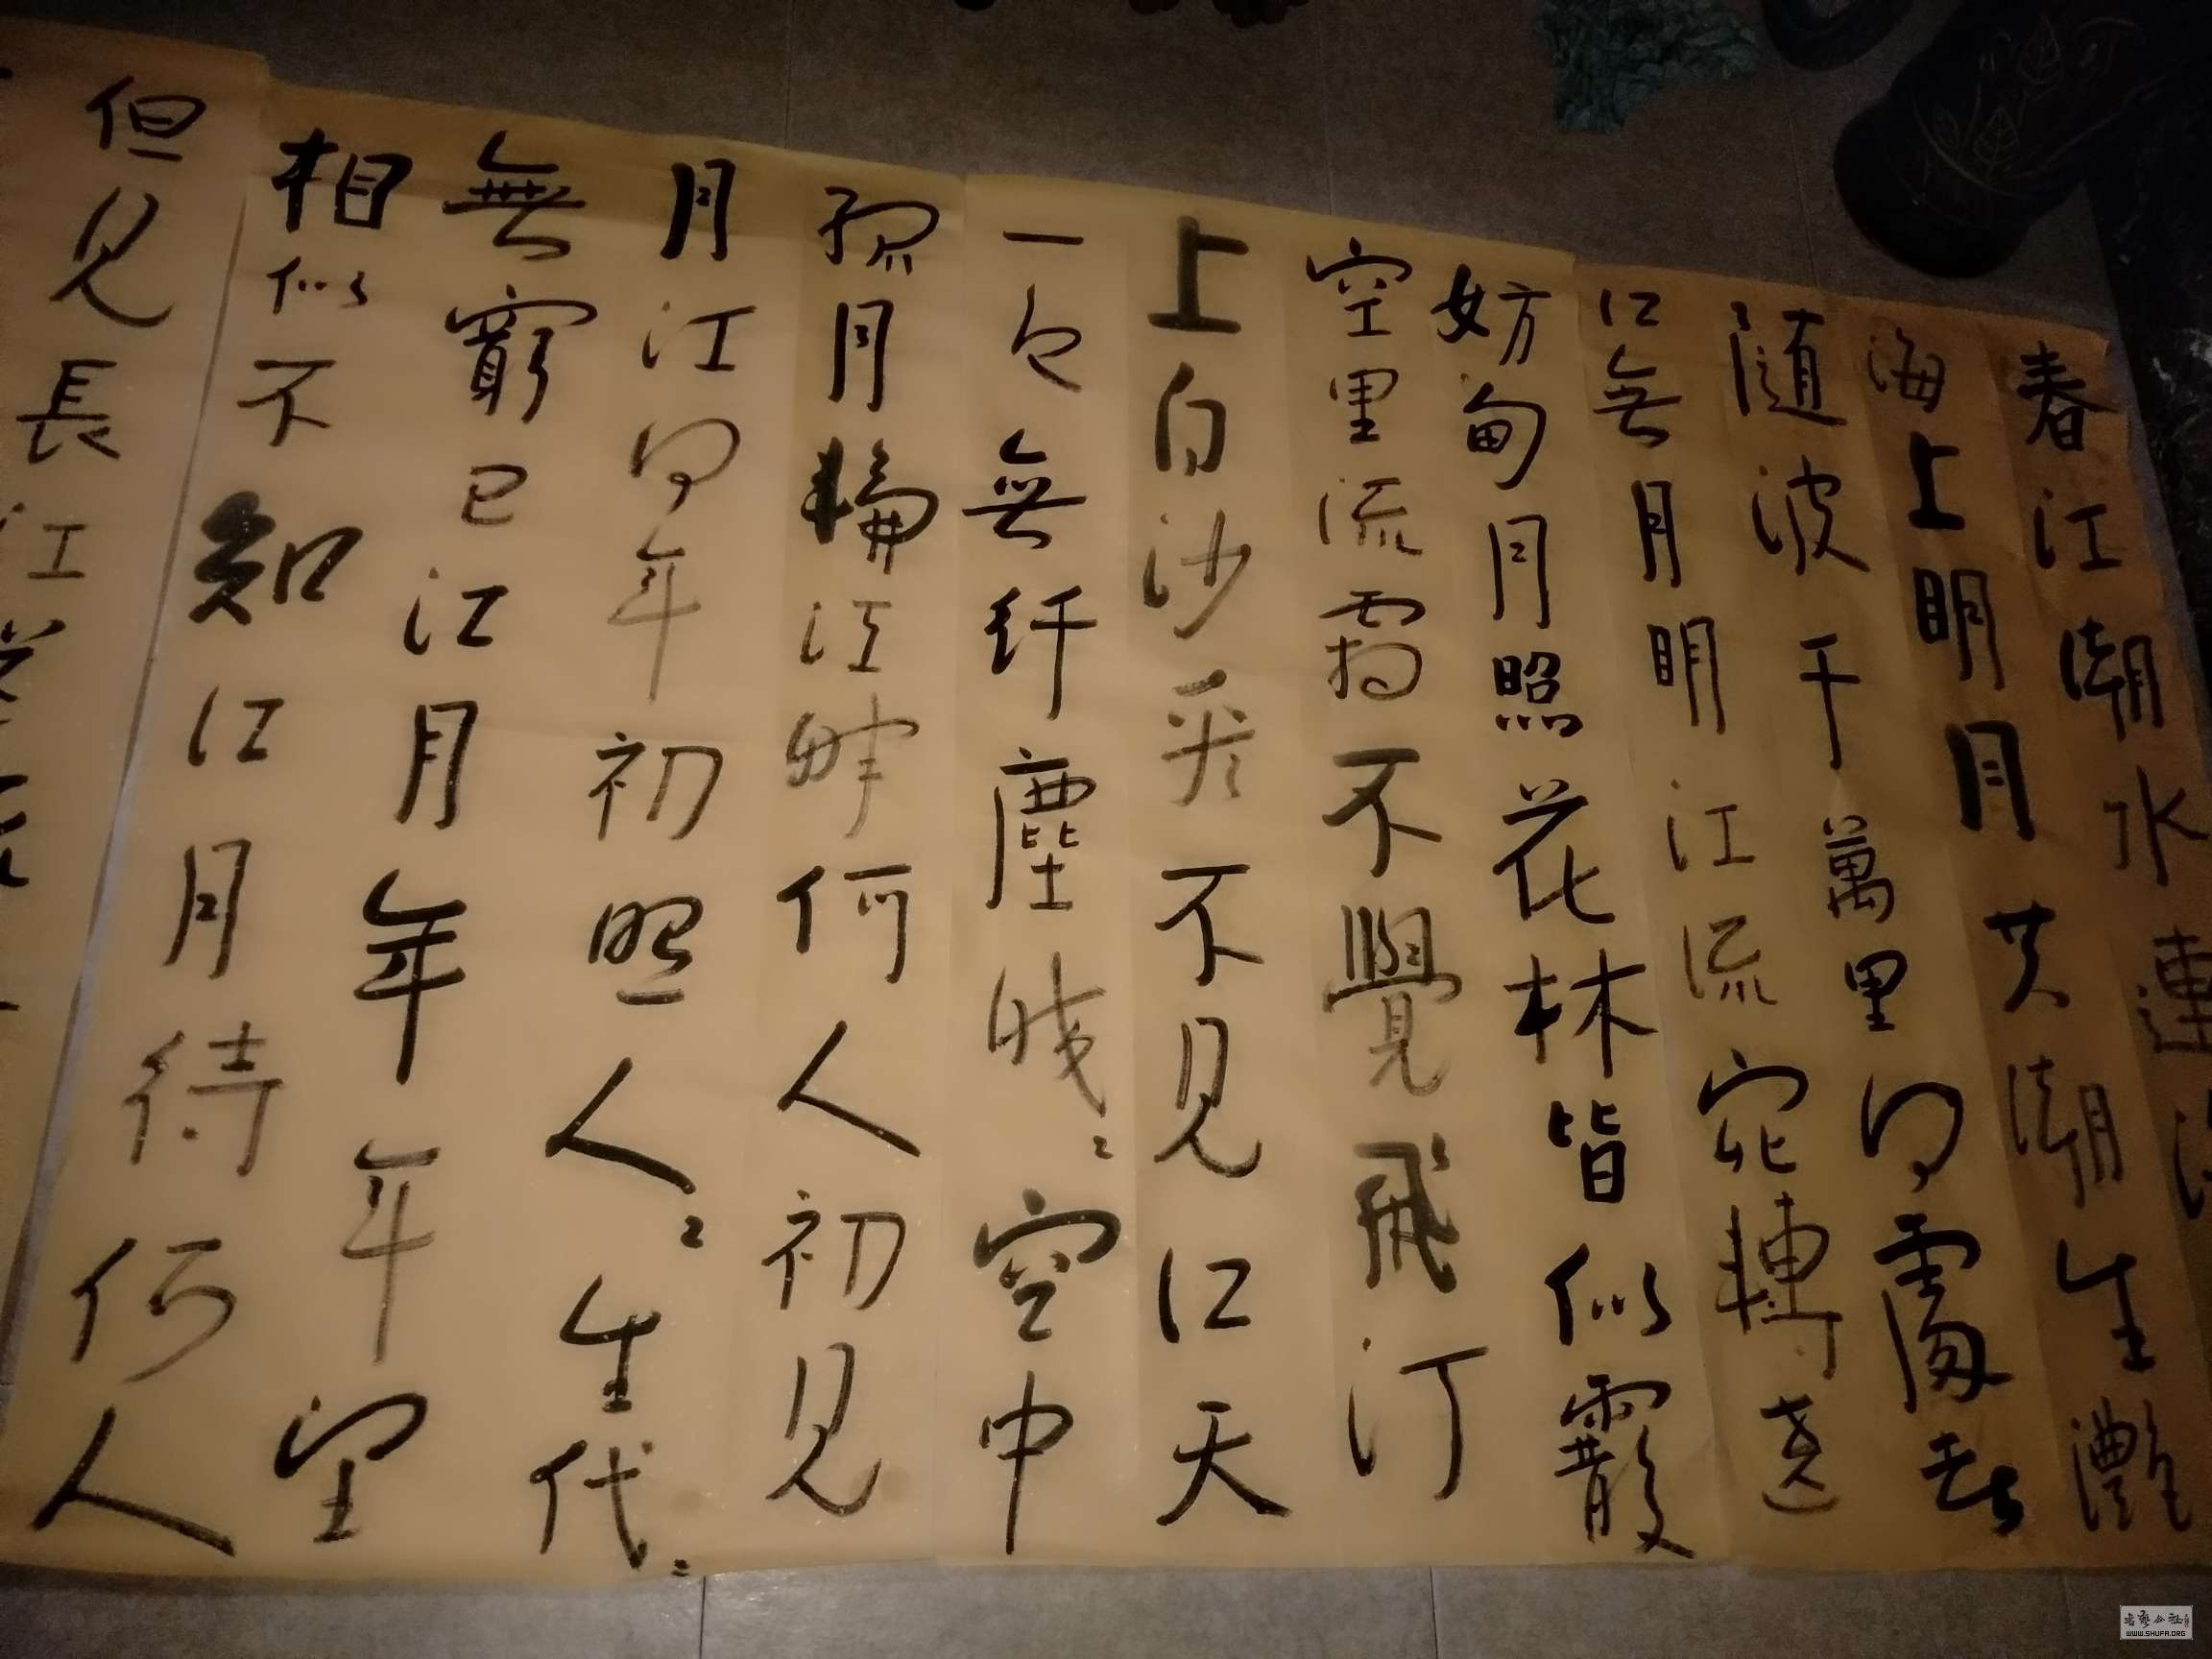 春江潮水連海
海上明月共潮生灩
隨波千萬里何處春
江無月明江流宛轉遶
妨甸月照花林皆似霰
空里流霜不覺飛汀
上白沙看不見江天
一色無纤塵皎〻空中
孤月輪江畔何人初見
月江何年初照人〻生代〻
無窮已江月年年望
相似不知江月待何人
但見長江
WWW.SHUFA.ORG